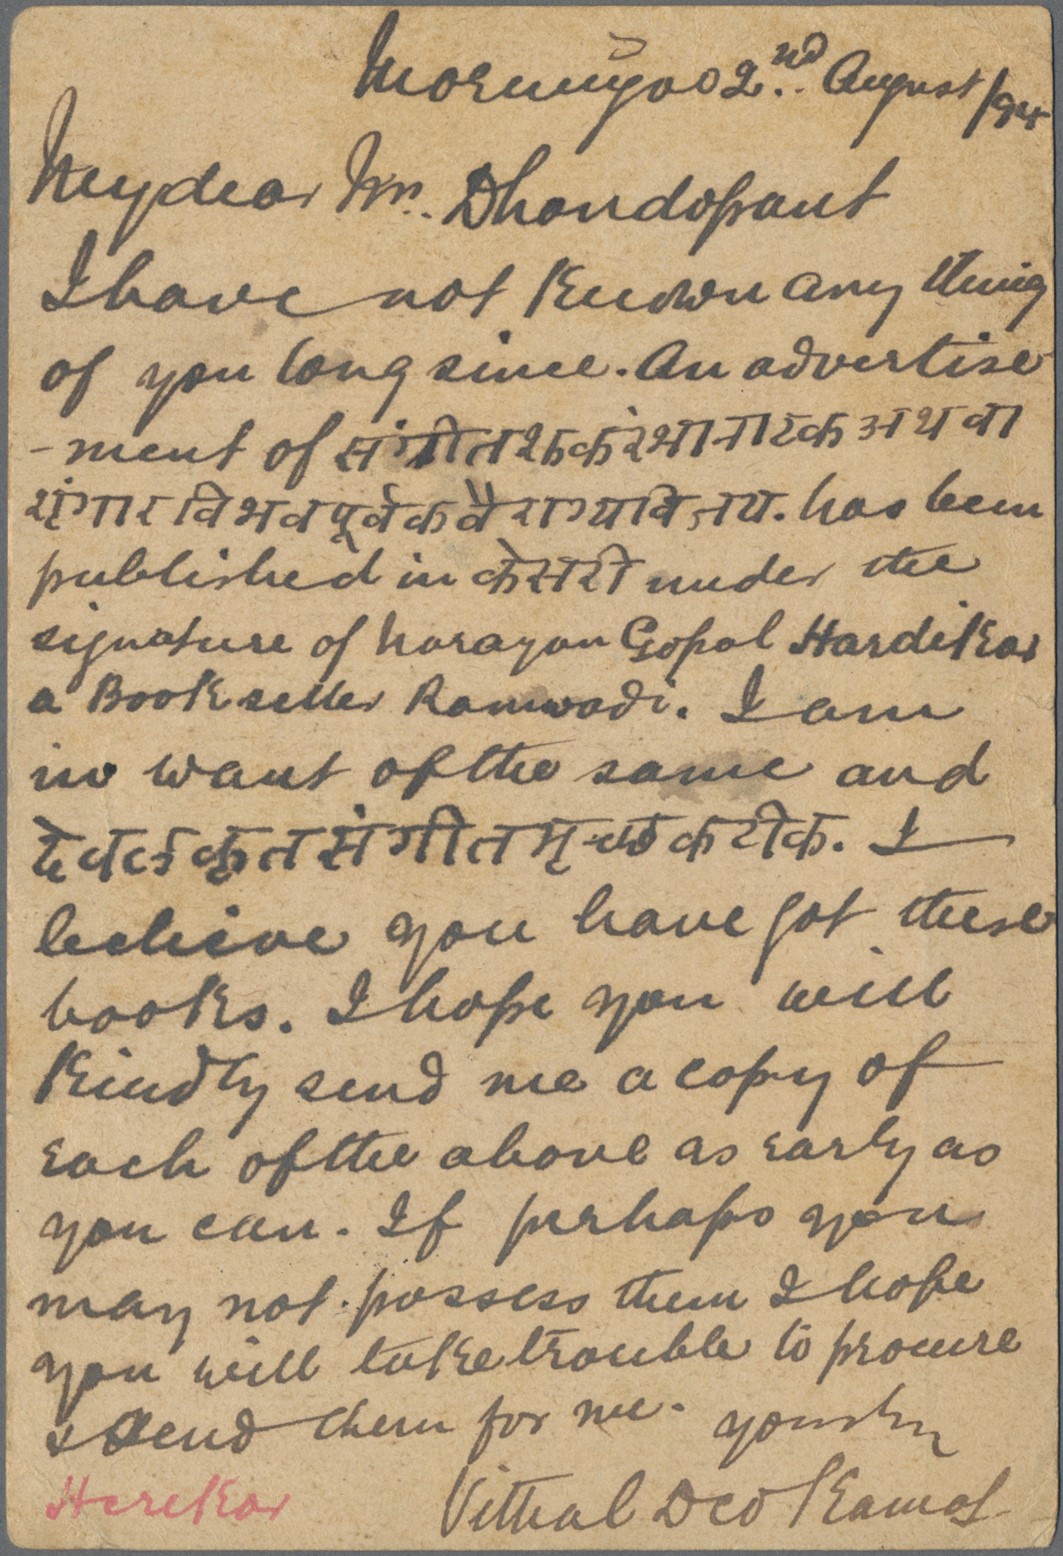 Mormugao 2nd August /94
My dear Mr. Dhondopant
I have not known any thing
of you long since. An advertise
-ment of संगीत शंकरभानाटक अथवा
has been
published in केसरी under the
signature of Narayan Gopal Hardikar
a Book seller Ramwadi. I am
in want of the same and
संगीत मृच्छकटीक. I
believe you have got these
books. I hope you will
kindly send me a copy of
each of the above as early as
you can. If perhaps you
may not possess them I hope
you will take trouble to procure
& send them for me. yours try
Vithal Deo Kamat
Herekar